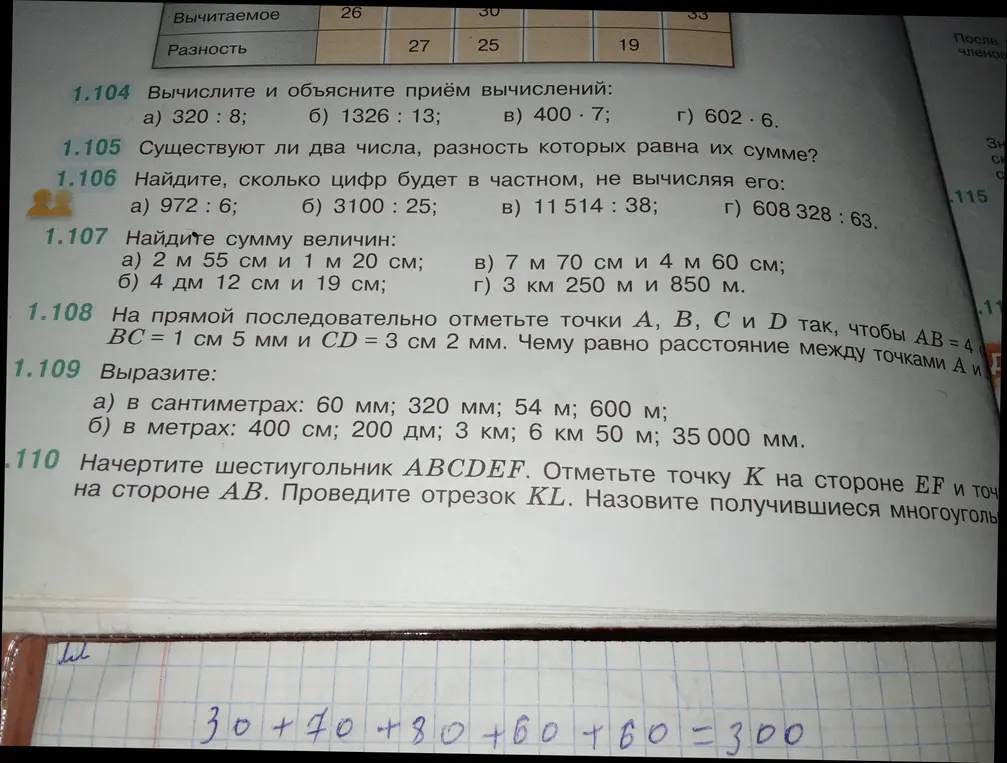 Вычитаемое 26 30 33
Разность 27 25 19
После
членов
1.104 Вычислите и объясните приём вычислений:
а) 320 : 8; б) 1326 : 13; в) 400 · 7; г) 602 · 6.
1.105 Существуют ли два числа, разность которых равна их сумме?
1.106 Найдите, сколько цифр будет в частном, не вычисляя его:
а) 972 : 6; б) 3100 : 25; в) 11 514 : 38; г) 608 328 : 63.
.115
1.107 Найдите сумму величин:
а) 2 м 55 см и 1 м 20 см; в) 7 м 70 см и 4 м 60 см;
б) 4 дм 12 см и 19 см; г) 3 км 250 м и 850 м.
1.108 На прямой последовательно отметьте точки A, B, C и D так, чтобы AB = 4
BC = 1 см 5 мм и CD = 3 см 2 мм. Чему равно расстояние между точками A и
1.109 Выразите:
а) в сантиметрах: 60 мм; 320 мм; 54 м; 600 м;
б) в метрах: 400 см; 200 дм; 3 км; 6 км 50 м; 35 000 мм.
.110 Начертите шестиугольник ABCDEF. Отметьте точку K на стороне EF и точ
на стороне AB. Проведите отрезок KL. Назовите получившиеся многоуголь
30 + 70 + 80 + 60 + 60 = 300